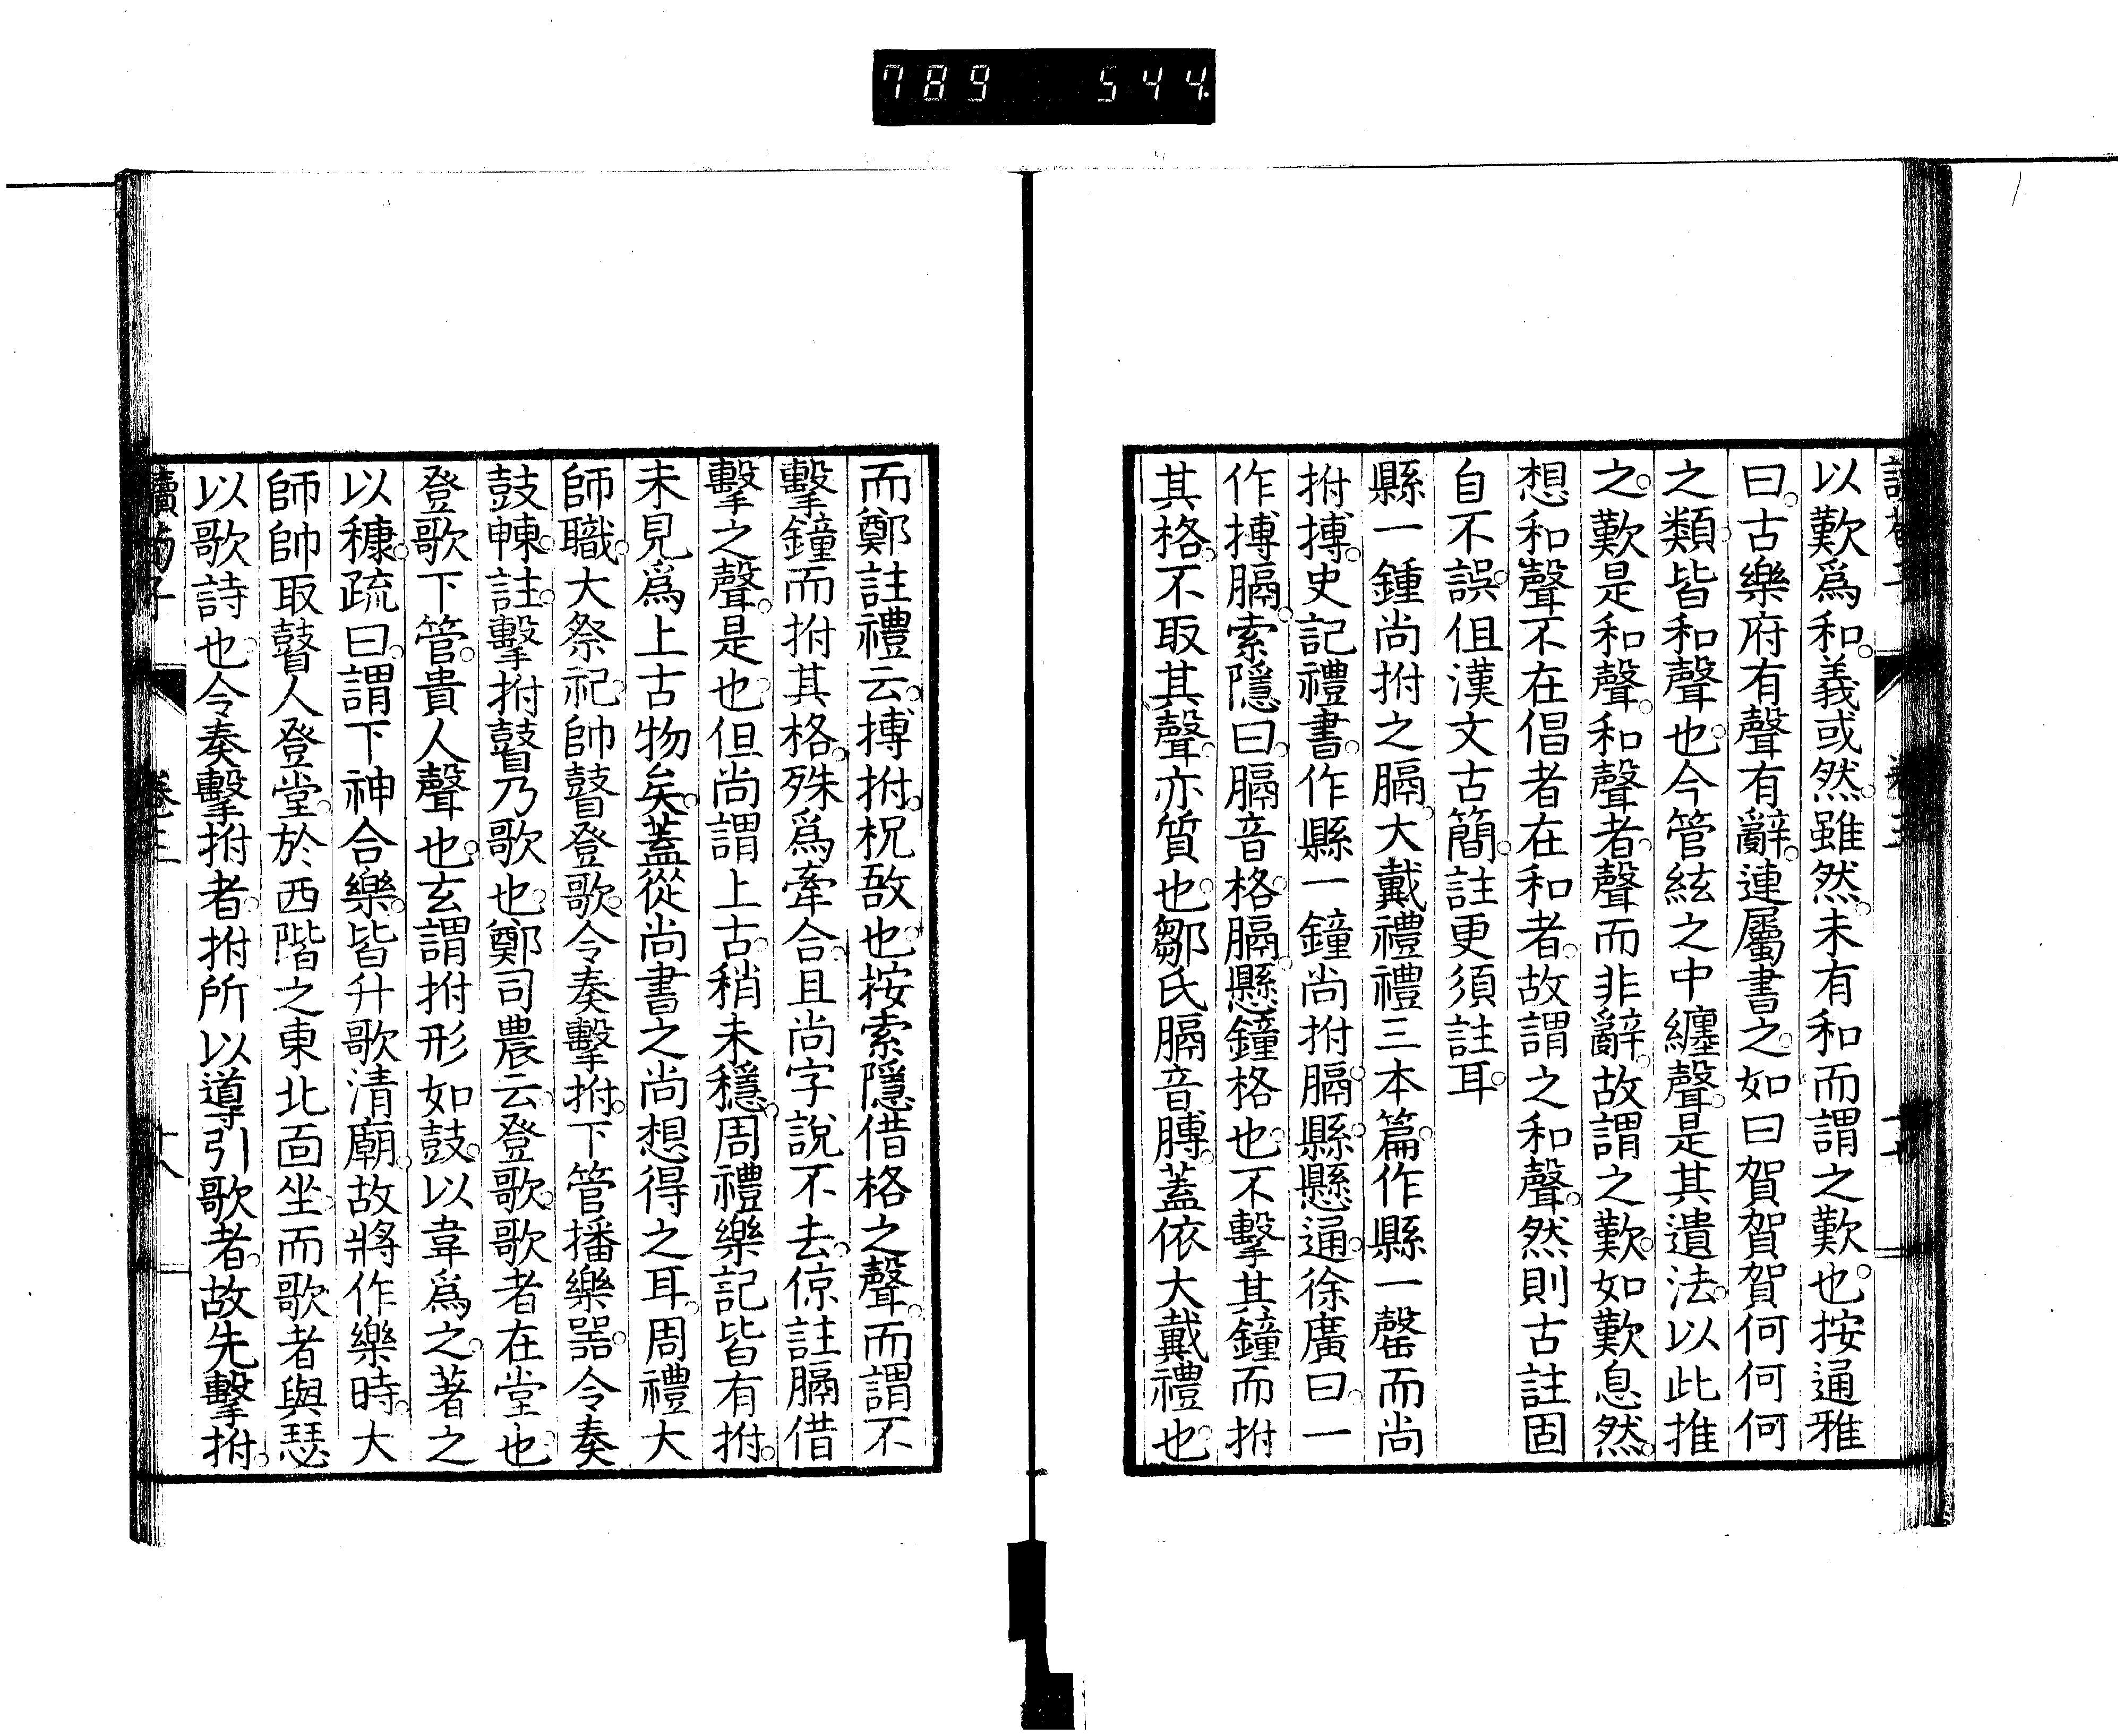 789 544
以歎爲和。義或然。雖然。未有和而謂之歎也。按通雅
曰。古樂府有聲有辭。連屬書之。如曰賀賀賀何何何
之類。皆和聲也。今管絃之中纏聲。是其遺法。以此推
之。歎是和聲。和聲者。聲而非辭。故謂之歎。如歎息然。
想和聲不在倡者在和者。故謂之和聲。然則古註固
自不誤。伹漢文古簡。註更須註耳。
縣一鍾尚拊之膈。大戴禮禮三本篇。作縣一罄而尚
拊搏。史記禮書。作縣一鐘尚拊膈。縣懸通。徐廣曰。一
作搏膈。索隱曰。膈音格。膈。懸鐘格也。不擊其鐘而拊
其格。不取其聲。亦質也。鄒氏膈音膊。蓋依大戴禮也。
而鄭註禮云。搏拊。柷敔也。按索隱借格之聲。而謂不
擊鐘而拊其格。殊爲牽合。且尚字說不去。倞註膈借
擊之聲。是也。但尚謂上古。稍未穩。周禮樂記皆有拊。
未見爲上古物矣。蓋從尚書之尚想得之耳。周禮大
師職。大祭祀。帥瞽登歌。令奏擊拊。下管播樂噐。令奏
鼓朄。註。擊拊瞽乃歌也。鄭司農云。登歌。歌者在堂也。
登歌下管。貴人聲也。玄謂拊形如鼓。以韋爲之。著之
以穅。疏曰。謂下神合樂。皆升歌清廟。故將作樂時。大
師帥取瞽人登堂。於西階之東北面坐。而歌者與瑟
以歌詩也。令奏擊拊者。拊所以導引歌者。故先擊拊。
讀荀子 卷三 十八